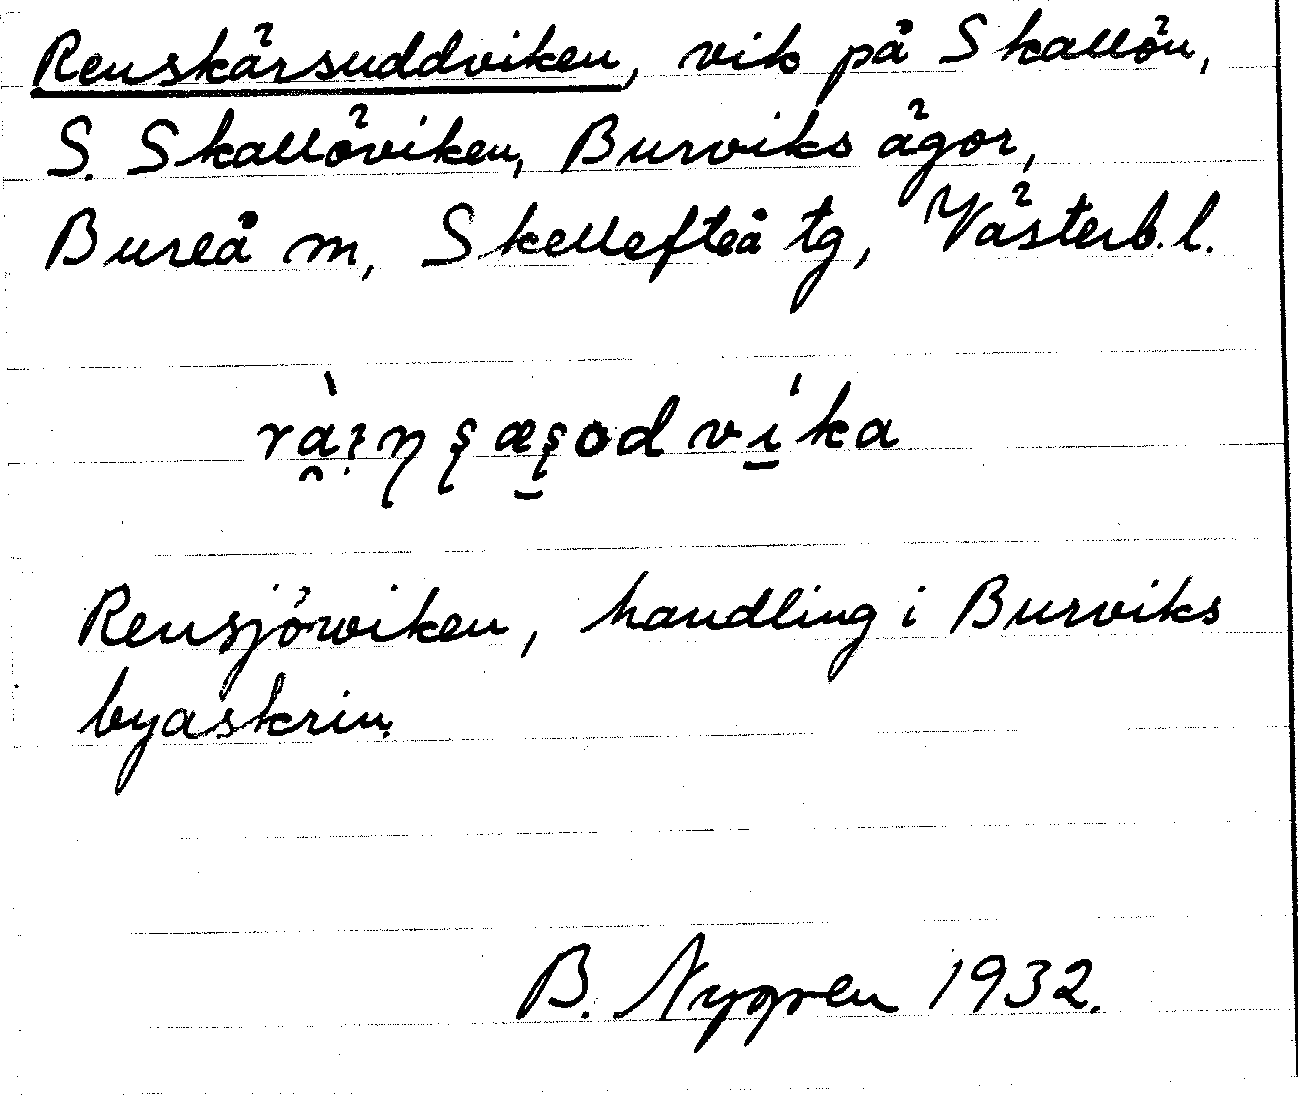 Renskärsuddviken, vik på Skallön,
S. Skallöviken, Burviks ägor,
Bureå m, Skellefteå tg, Västerb. l.
Rensjöwiken, handling i Burviks
byaskrin.
B. 1932.